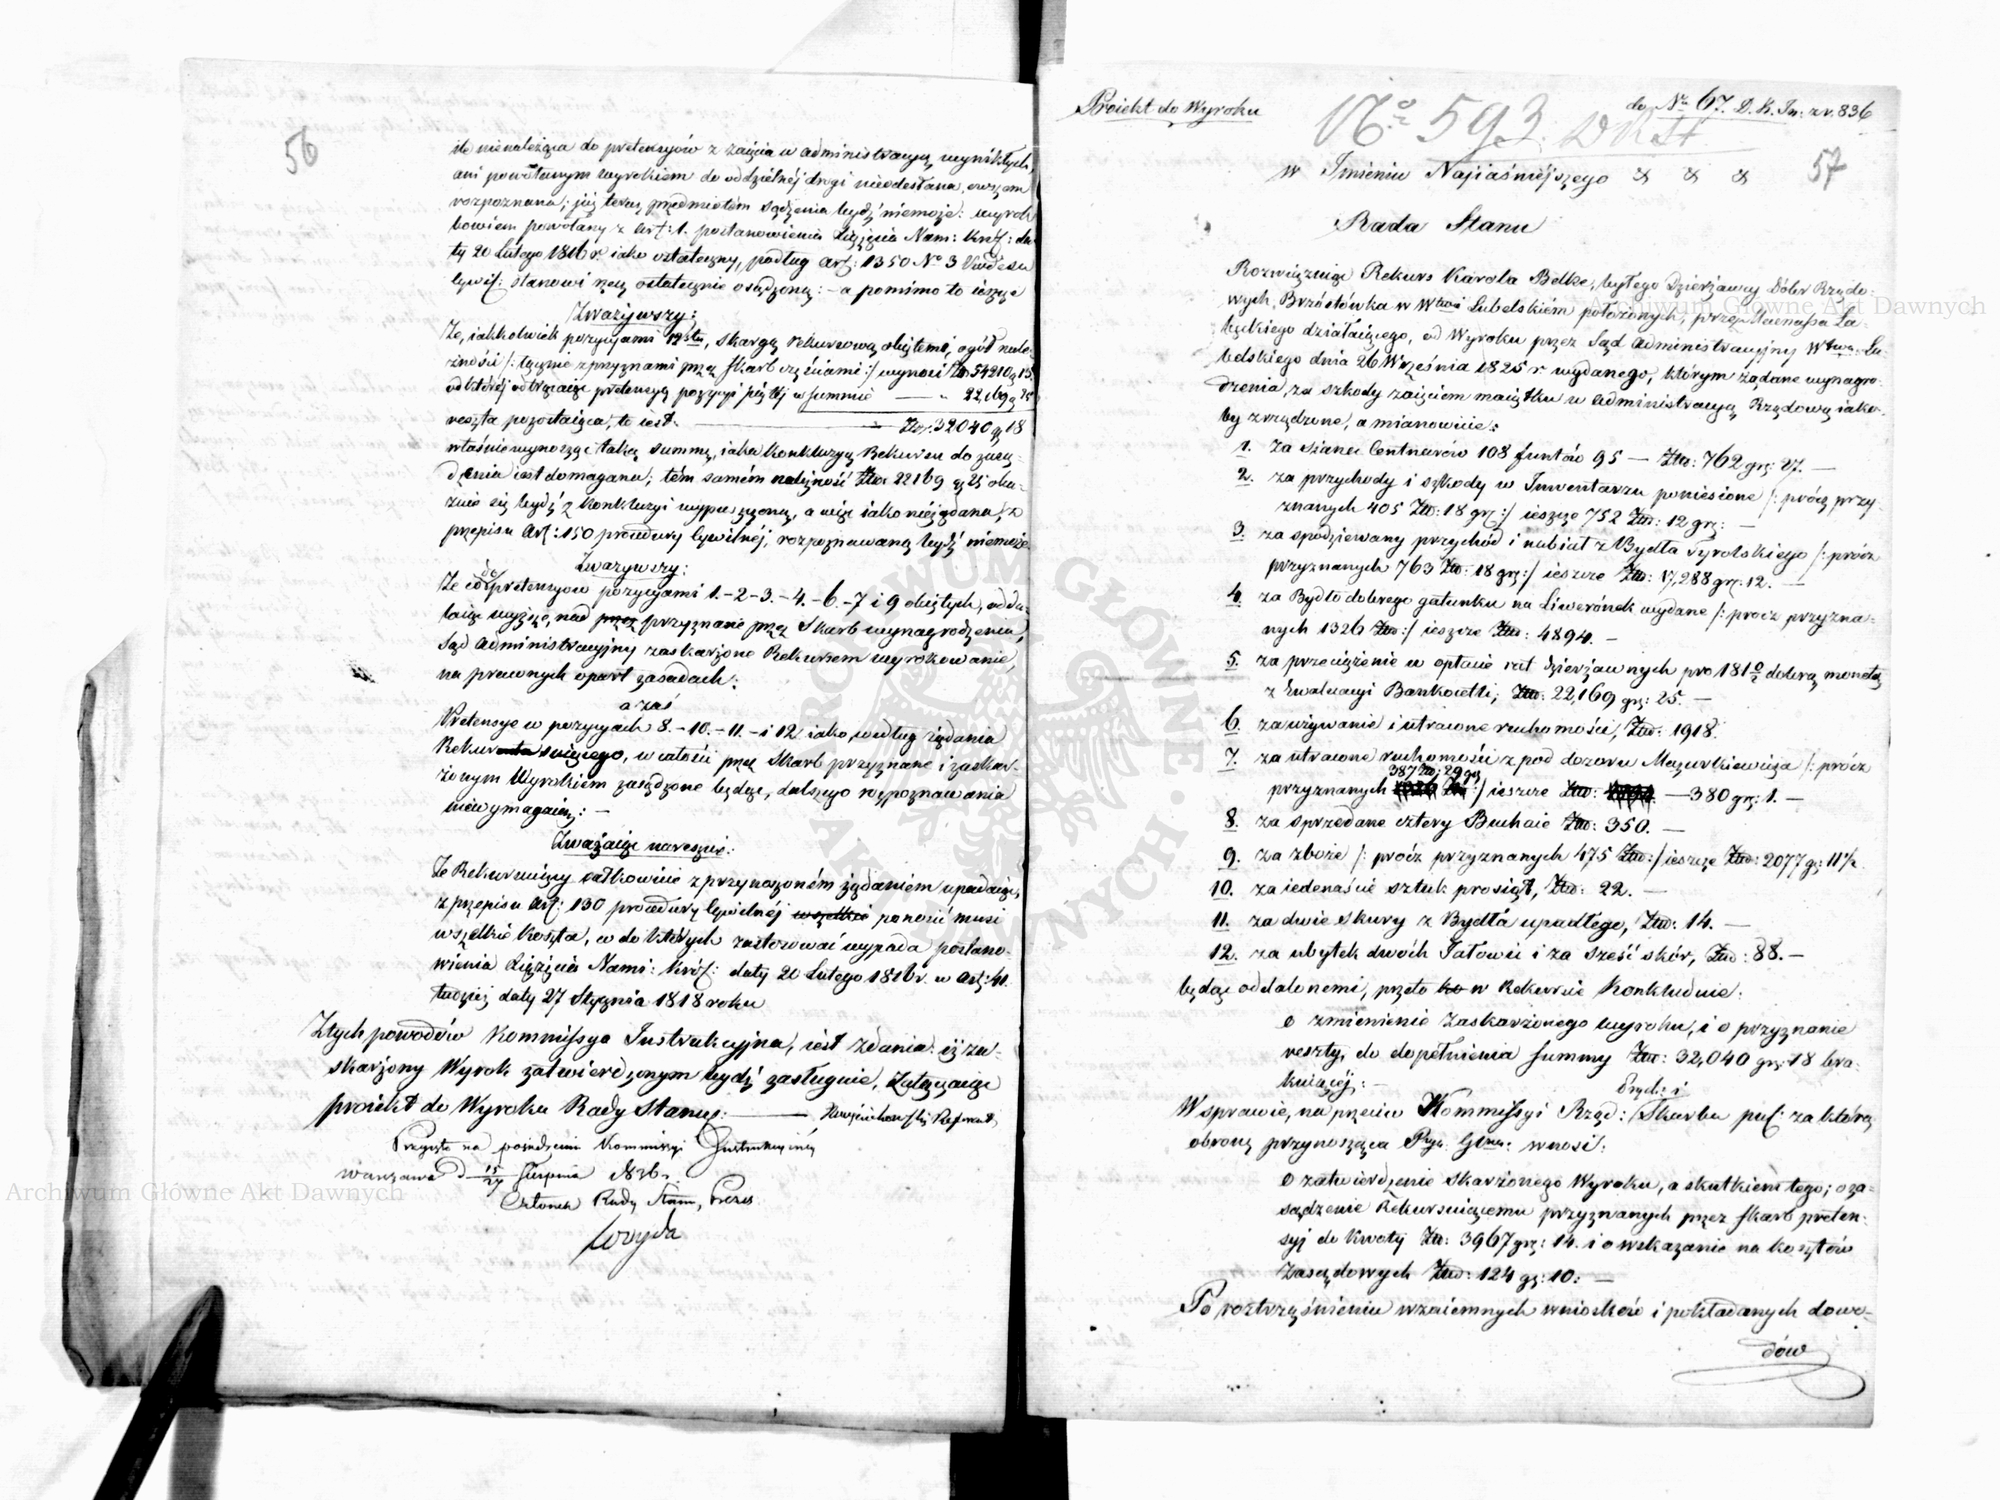 56
ile nienależąca do pretensyów z zaięcia w administracyą wynikłych,
ani powołanym wyrokiem do oddzielnéj drogi nieodesłana, owszem
rozpoznana; już teraz przedmiotem sądzenia bydź niemoże: wyrok
bowiem powołany z art: 1. postanowienia Xiążęcia Nam: Król: da-
ty 20 Lutego 1816 r. iako ostateczny, podług art: 1350 No 3 Kodexu
Cywil: stanowi rzecz ostatecznie osądzoną: - a pomimo to ieszcze
Zważywszy:
Że, iakkolwiek pozycyami 12stu, skargą rekursową obiętemi, ogół nale-
żności /: łącznie z przyznanemi przez skarb częściami :/ wynosi Zło 54210 g 13.
od któréj odtrącaiąc pretensyą pozycyi piątéj w summie — „ 22,169 g 25
reszta pozostaiąca, to iest: — Złp: 32040 g 18
właśnie wynosząc taką summę, iaka konkluzyą Rekursu do zasą-
dzenia iest domagana; tém samém należność Złto: 22169 g 25 oka-
zuie się bydź z konkluzyi wypuszczoną, a więc iako nieżądana, z
przepisu Art: 150 procedury Cywilnéj, rozpoznawaną bydź niemoże.
Zważywszy:
Że co do pretensyow pozycyami 1.-2-3.-4.-6.-7 i 9 obiętych, odda-
laiąc wyższe, nad przez przyznane przez Skarb wynagrodzenia,
Sąd Administracyjny zaskarżone Rekursem wyrokowanie,
na prawnych oparł zasadach:
a zaś
Pretensye w pozycyach 8.-10.-11.- i 12 iako, według żądania
Rekursuiącego, w całości przez Skarb przyznane i zaskar-
żonym Wyrokiem zasądzone będąc, dalszego rozpoznawania
niewymagaią: —
Zważaiąc nareszcie:
Że Rekursuiący całkowicie z przynoszoném żądaniem upadaiąc,
z przepisu Art: 130 procedury Cywilnéj wszelkie ponosić musi
wszelkie koszta, co do których zastosować wypada postano-
wienia Xiążęcia Nami: Król: daty 20 Lutego 1816 r. w Art: 41.
tudzież daty 27 Stycznia 1818 roku
Z tych powodów Kommissya Instrukcyjna, iest zdania: iż za-
skarżony Wyrok zatwierdzonym bydź zasługuie, Załączaiąc
proiekt do Wyroku Rady Stanu: — Referent
Przyięto na posiedzeniu Kommissyi Instrukcyinéj
Warszawa d 15/27 Sierpnia 1836 r.
Członek Rady Stanu, Prezes
Woyda
Proiekt do Wyroku
do Nru 67. D. K. In: z r. 836
No 593 DKSt
57
w Imieniu Najiaśniéjszego & & &
Rada Stanu
Rozwiązuiąc Rekurs Karola Belke, byłego Dzierżawcy Dóbr Rządo-
wych, Brzóstówka w Wtwie Lubelskiém położonych, przez Macnassa Ła-
będzkiego działaiącego, od Wyroku przez Sąd Administracyjny Wtwa Lu-
belskiego dnia 26 Września 1825 r wydanego, którym żądane wynagro-
dzenia, za szkody zaięciem maiątku w administracyą Rządową iako-
by zrządzone, a mianowicie:
1. Za siana Centnarów 108 funtów 95 — Złto: 762 gr: 27. —
2. za przychody i szkody w Inwentarzu poniesione /: prócz przy-
znanych 405 Złto: 18 gr: :/ ieszcze 752 Złto: 12 gr: —
3. za spodziewany przychód i nabiał z Bydła Tyrolskiego /: prócz
przyznanych 763 Złto: 18 gr: :/ ieszcze Złto: 1,288 gr: 12. —
4. za Bydło dobrego gatunku na Liwerónek wydane /: procz przyzna-
nych 1326 Złto: :/ ieszcze Złto: 4894. —
5. za przeciążenie w opłacie rat dzierżawnych pro 181 0/2 dobrą monetą
z Ewaluacyi Bankocetli, Złto: 22,169 gr: 25. —
6. za używanie i utracone ruchomości, Złto: 1918.
7. za utracone ruchomości z pod dozoru Mazurkiewicza /: prócz
387 Złto: 29 gr
przyznanych :/ ieszcze Złto: — 380 gr: 1. —
8. za sprzedane cztery Buhaie Złto: 350. —
9. za zboże /: prócz przyznanych 475 Złto: :/ ieszcze Złto: 2077 gr: 11½.
10. za iedenaście sztuk prosiąt, Złto: 22. —
11. za dwie skury z Bydła upadłego, Złto: 14. —
12. za ubytek dwóch Jałowic i za sześć skór, Złto: 88. —
będąc oddalonemi, przeto w Rekursie Konkluduie:
o zmienienie zaskarżonego wyroku, i o przyznanie
reszty, do dopełnienia summy Złto: 32,040 gr: 18 bra-
kuiącéj: —
Przych: i
W sprawie, na przeciw Kommissyi Rząd: Skarbu pub: za którą
obronę przynosząca Prya: Glna: wnosi:
o zatwierdzenie skarżonego Wyroku, a skutkiem tego; o za-
sądzenie Rekursuiącemu przyznanych przez skarb preten-
syj do kwoty Złto: 3967 gr: 14. i o wskazanie na kosztów
Zasądowych Złto: 124 gr: 10: —
Po roztrząśnieniu wzaiemnych wniosków i pokładanych dowo-
dów
Archiwum Główne Akt Dawnych
Archiwum Główne Akt Dawnych
ARCHIWUM GŁÓWNE AKT DAWNYCH